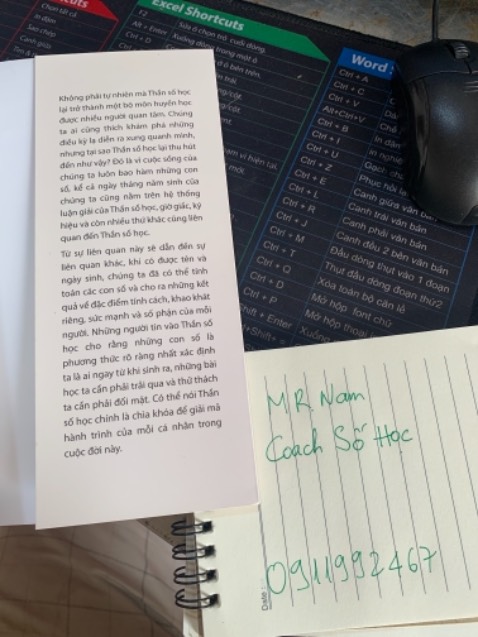 Excel Shortcuts
Chọn tất cả
In đậm
Sao chép
Canh giữa
F2
Sửa ô chọn trỏ cuối dòng.
Alt + Enter
Xuống dòng trong một ô
Ctrl + D
Word
Ctrl + A
Ctrl + C
Ctrl + V
Alt+Ctrl+V
Ctrl + B
In đậm
Ctrl + I
in nghiê
Ctrl + U
Gạch ch
Ctrl + Z
Phục hồi lạ
Ctrl + E
Canh giữa văn bả
Ctrl + L
Canh trái văn bản
Ctrl + R
Canh phải văn bản
Ctrl + J
Canh đều 2 bên văn bản
Ctrl + M
Đầu dòng thụt vào 1 đoạn
Ctrl + T
Thụt đầu dòng đoạn thứ2
Ctrl + Q
Xóa toàn bộ căn lề
Ctrl + D
Mở hộp font chữ
Ctrl + P
Mở hộp thoại
Shift + Enter
Xuống
Không phải tự nhiên mà Thần số học
lại trở thành một bộ môn huyền học
được nhiều người quan tâm. Chúng
ta ai cũng thích khám phá những
điều kỳ lạ diễn ra xung quanh mình,
nhưng tại sao Thần số học lại thu hút
đến như vậy? Đó là vì cuộc sống của
chúng ta luôn bao hàm những con
số, kể cả ngày tháng năm sinh của
chúng ta cũng nằm trên hệ thống
luận giải của Thần số học, giờ giấc, ký
hiệu và còn nhiều thứ khác cũng liên
quan đến Thần số học.
Từ sự liên quan này sẽ dẫn đến sự
liên quan khác, khi có được tên và
ngày sinh, chúng ta đã có thể tính
toán các con số và cho ra những kết
quả về đặc điểm tính cách, khao khát
riêng, sức mạnh và số phận của mỗi
người. Những người tin vào Thần số
học cho rằng những con số là
phương thức rõ ràng nhất xác định
ta là ai ngay từ khi sinh ra, những bài
học ta cần phải trải qua và thử thách
ta cần phải đối mặt. Có thể nói Thần
số học chính là chìa khóa để giải mã
hành trình của mỗi cá nhân trong
cuộc đời này.
MR Nam
Coach Số Học
0911992467
Date :